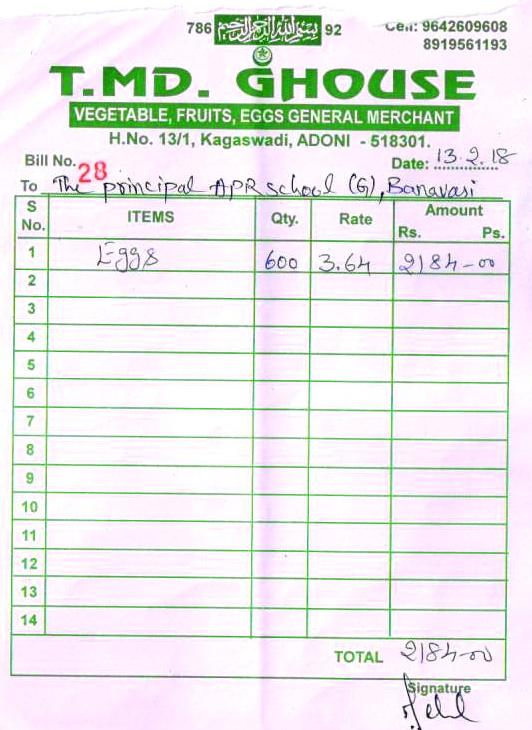 786 بسم الله الرحمن الرحيم 92
Cell: 9642609608
8919561193
T.MD. GHOUSE
VEGETABLE, FRUITS, EGGS GENERAL MERCHANT
H.No. 13/1, Kagaswadi, ADONI - 518301.
Bill No. 28 Date: 13.2.18
To The principal APR school (G), Banavasi
S No. ITEMS Qty. Rate Amount Rs. Ps.
1 Eggs 600 3.64 2184-00
2
3
4
5
6
7
8
9
10
11
12
13
14
TOTAL 2184-00
Signature